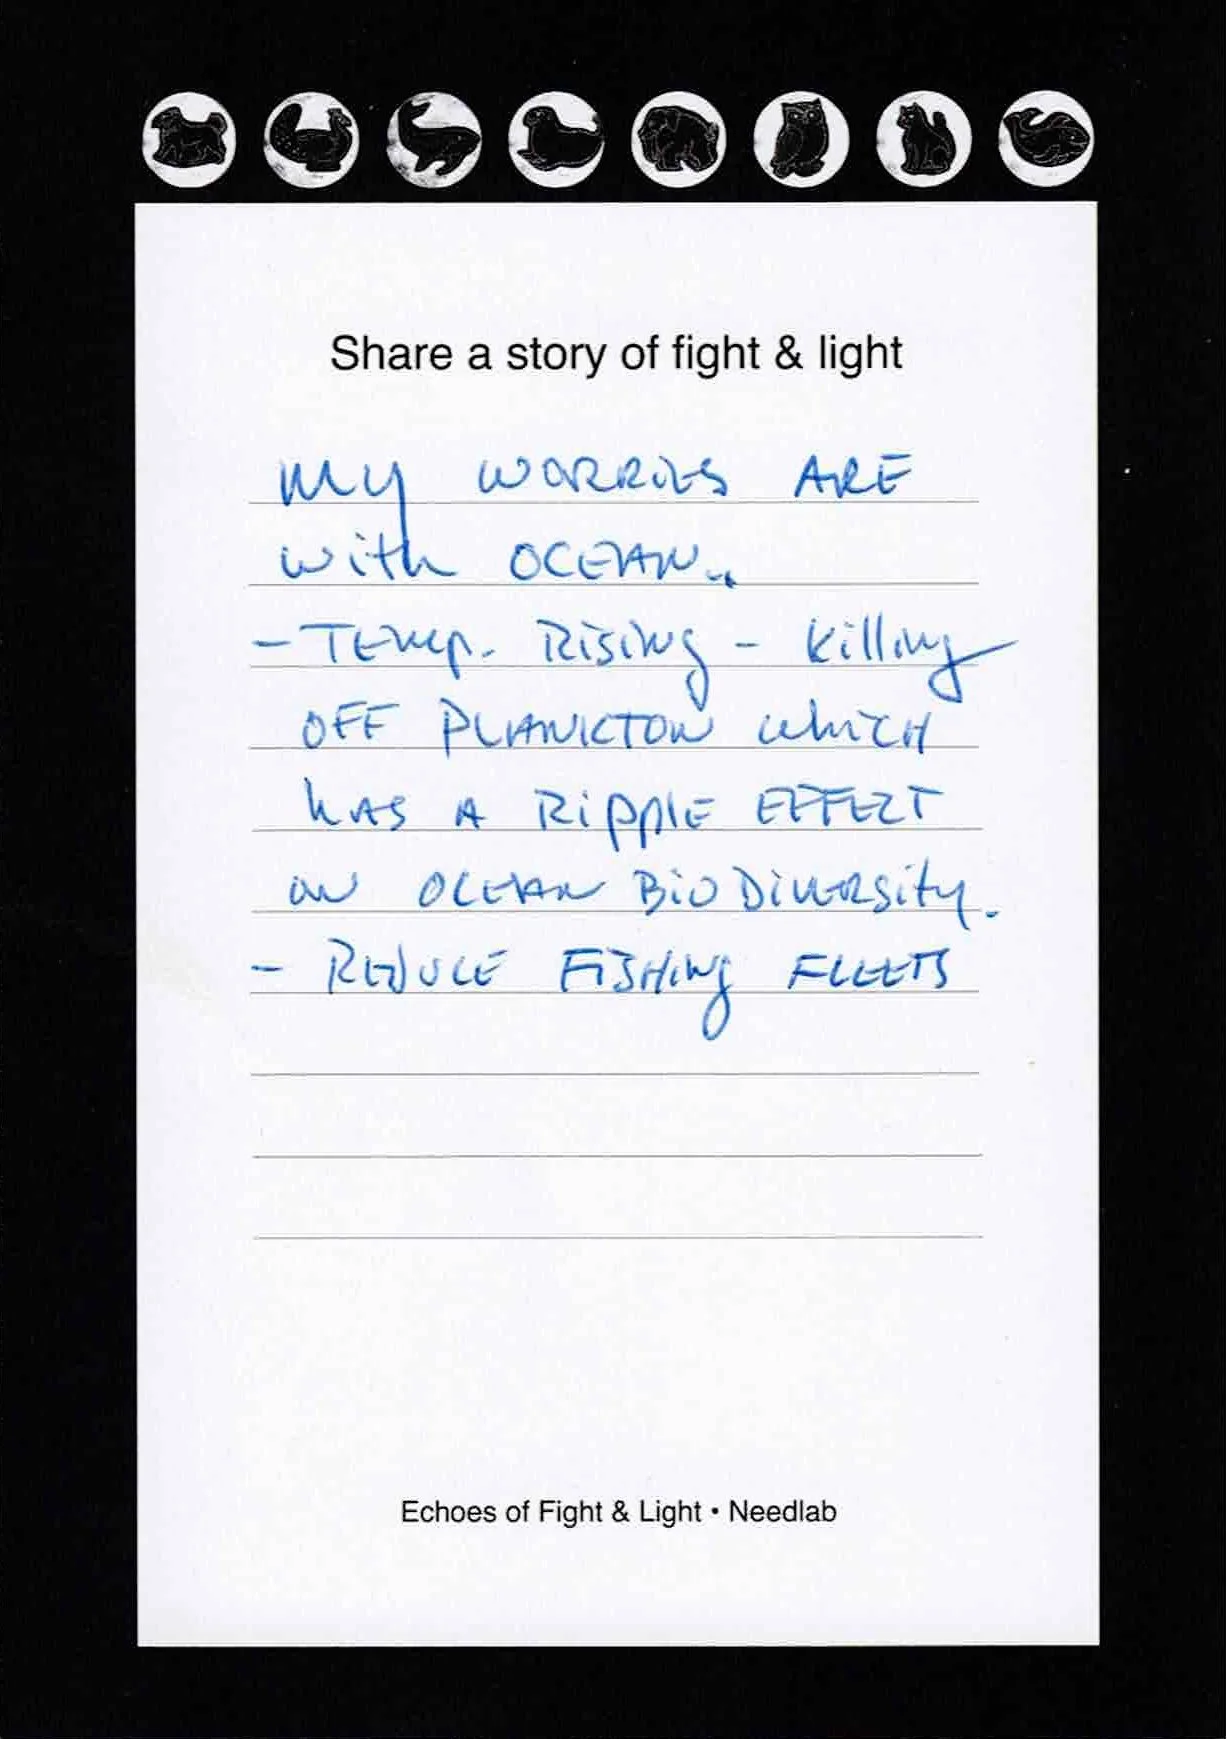 Share a story of fight & light
MY WORRIES ARE
With OCEAN..
- TEMP. RISING - Killing
OFF PLANKTON which
HAS A RIPPLE EFFECT
ON OCEAN BIO DIVERSITY.
- REDUCE FISHING FLEETS
Echoes of Fight & Light • Needlab